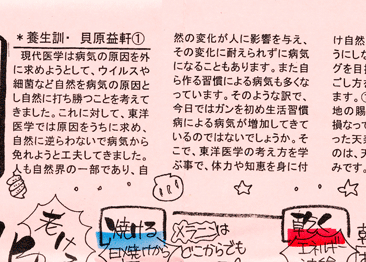 *養生訓・貝原益軒①
現代医学は病気の原因を外
に求めようとして、ウイルスや
細菌など自然を病気の原因と
し自然に打ち勝つことを考えて
きました。これに対して、東洋
医学では原因をうちに求め、
自然に逆らわないで病気から
免れようと工夫してきました。
人も自然界の一部であり、自
然の変化が人に影響を与え、
その変化に耐えられずに病気
になることもあります。また自
ら作る習慣による病気も多くな
っています。そのような訳で、
今日ではガンを初め生活習慣
病による病気が増加してきて
いるのではないでしょうか。そ
こで、東洋医学の考え方を学
ぶ事で、体力や知恵を身に付
け自然
うにしな
グを目指
ごし方を
ます。
地の賜
損なって
った天
のは、天
みです。
老け
焼ける
日焼けから
メラニンは
どこからでも
乾く